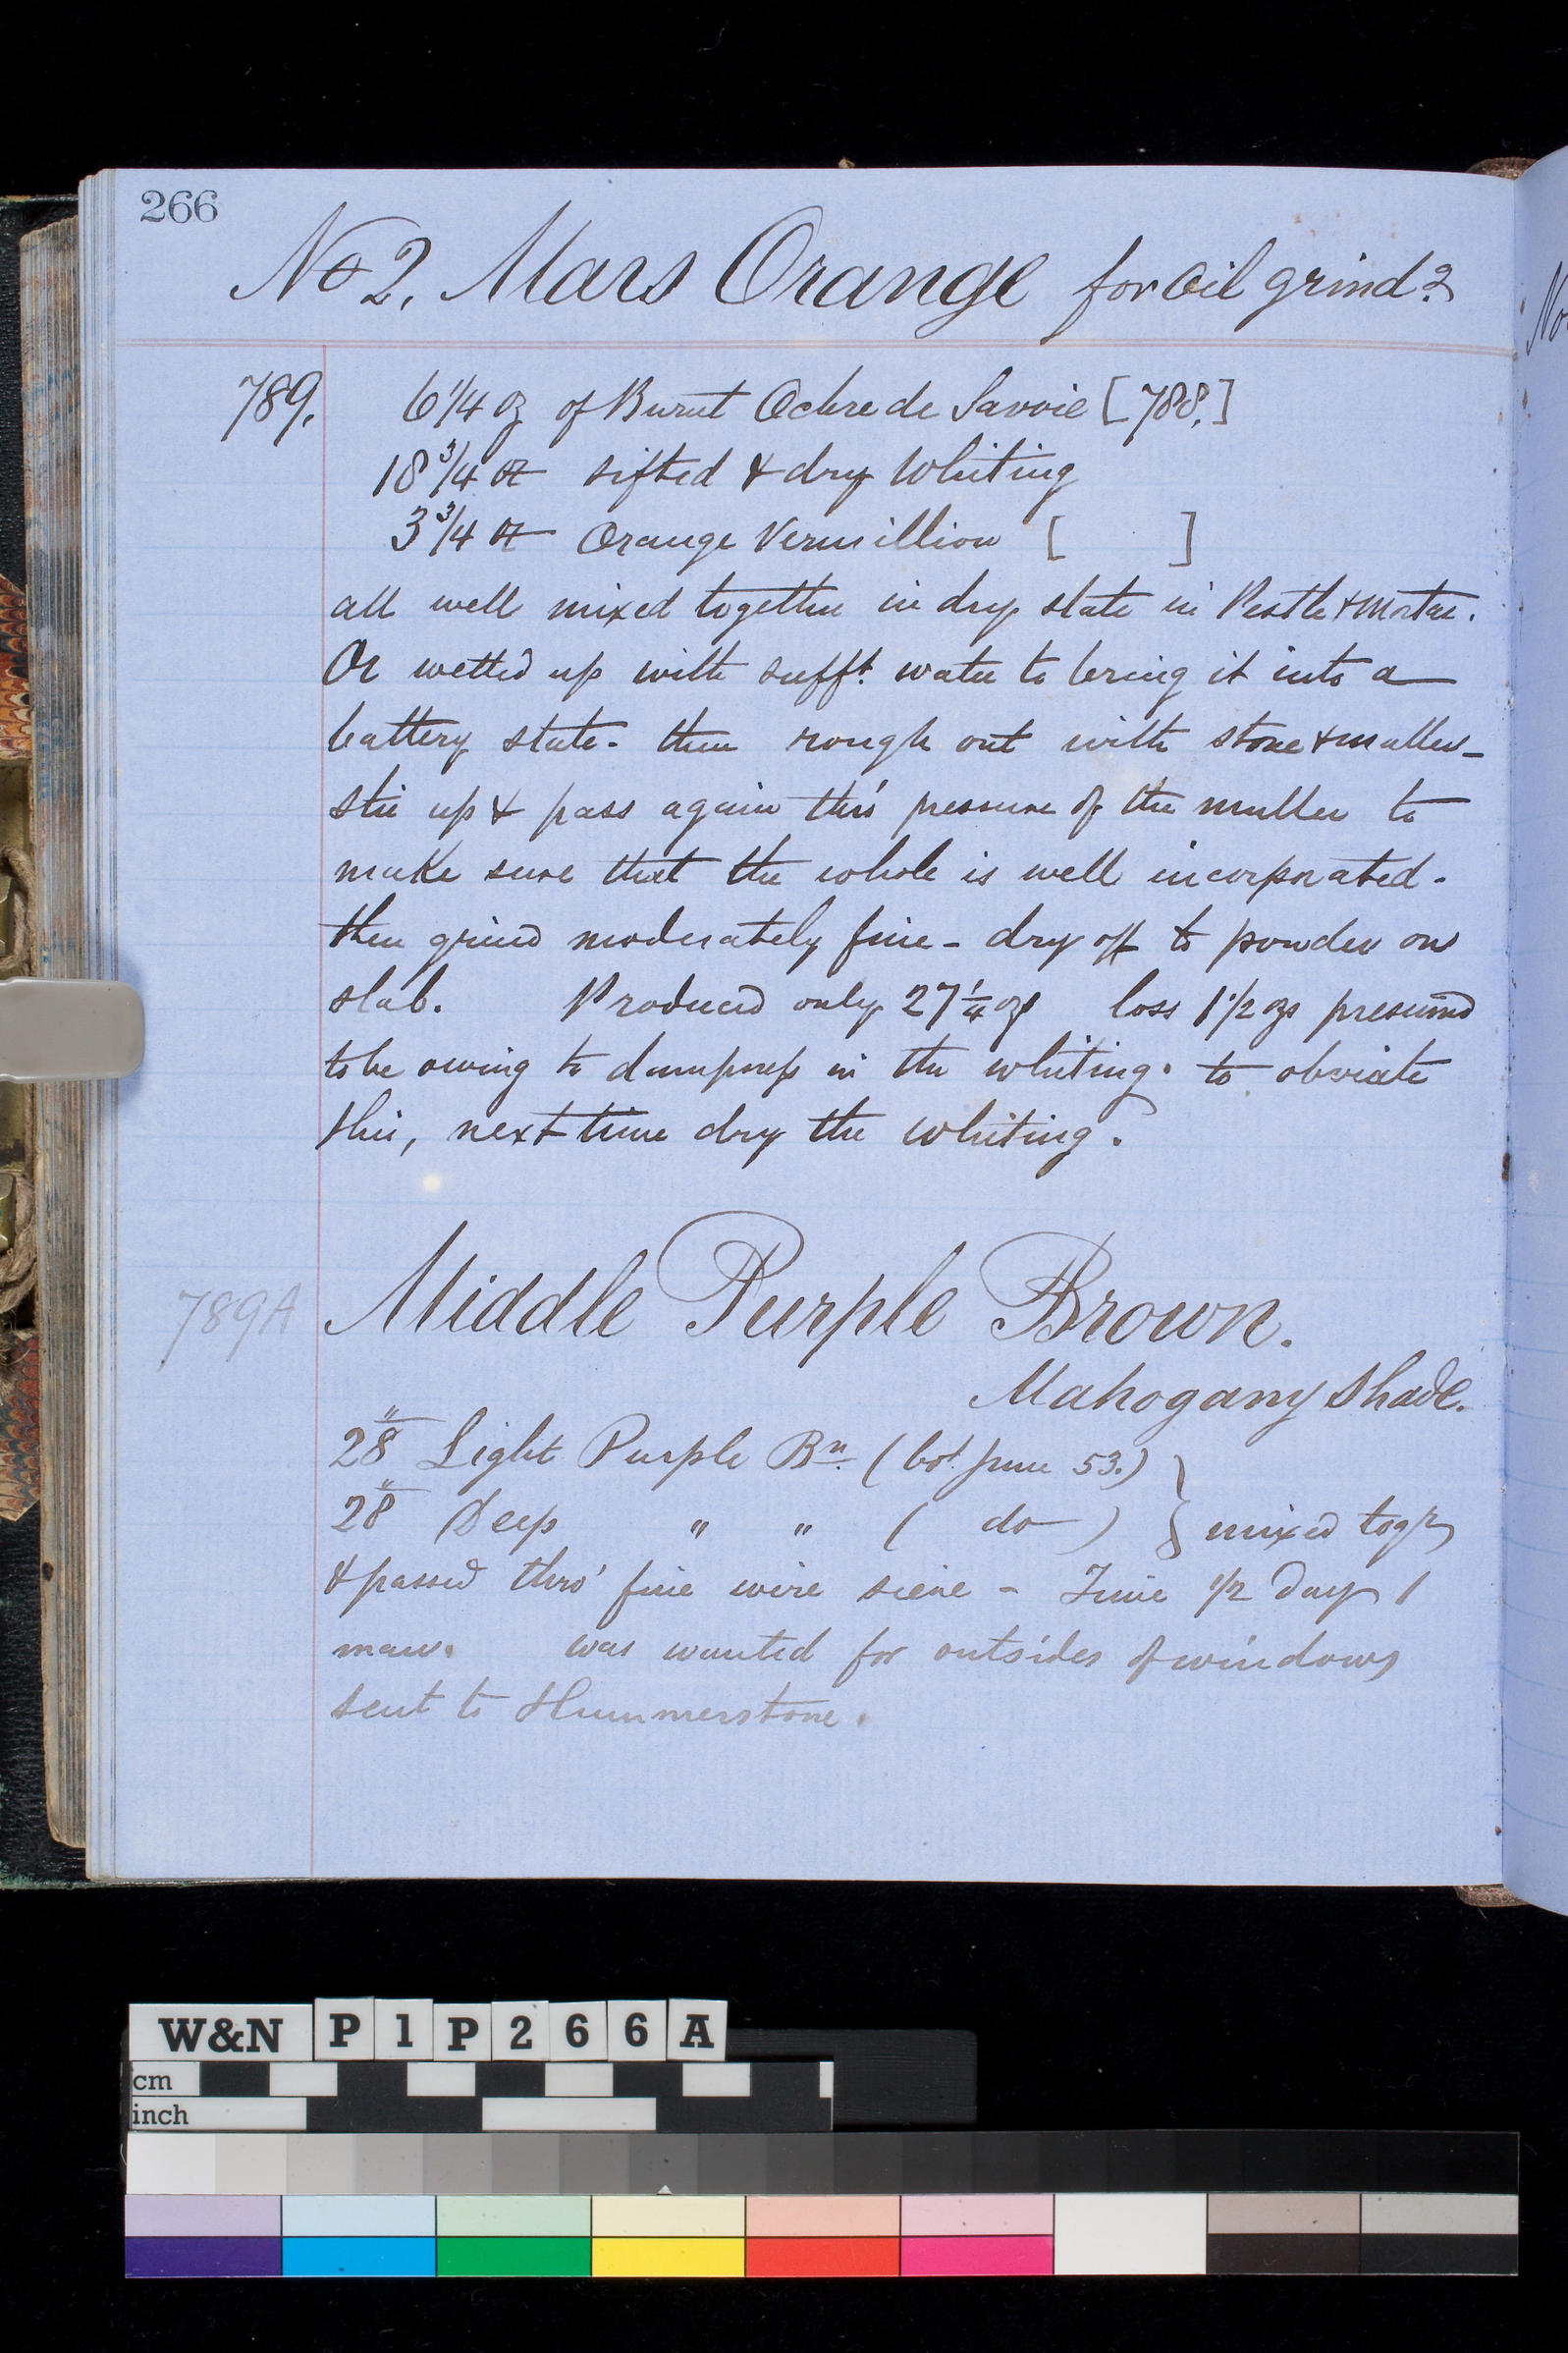 266
No 2. Mars Orange for Oil grindg
789. 6 1/4 oz of Burnt Ochre de Savoie [788.]
18 3/4 oz sifted & dry Whiting
3 3/4 oz Orange Vermillion [ ]
all well mixed together in dry state in Pestle & Mortar.
Or wetted up with sufft. water to bring it into a
battery state. then rough out with stone & muller -
stir up & pass again thro' pressure of the muller to
make sure that the whole is well incorporated -
then grind moderately fine - dry off to powder on
slab. Produced only 27 1/4 ozs loss 1 1/2 ozs presumed
to be owing to dampness in the whiting. to obviate
this, next time dry the whiting.
789A Middle Purple Brown.
Mahogany Shade.
28 lb Light Purple Bn. (bot. June 53.) }
28 lb Deep " " ( do ) } mixed togr
& passed thro' fine wire sieve - Time 1/2 Day 1
man. was wanted for outsides of windows
sent to Hummerstone.
No
W&N P1P266A
cm
inch